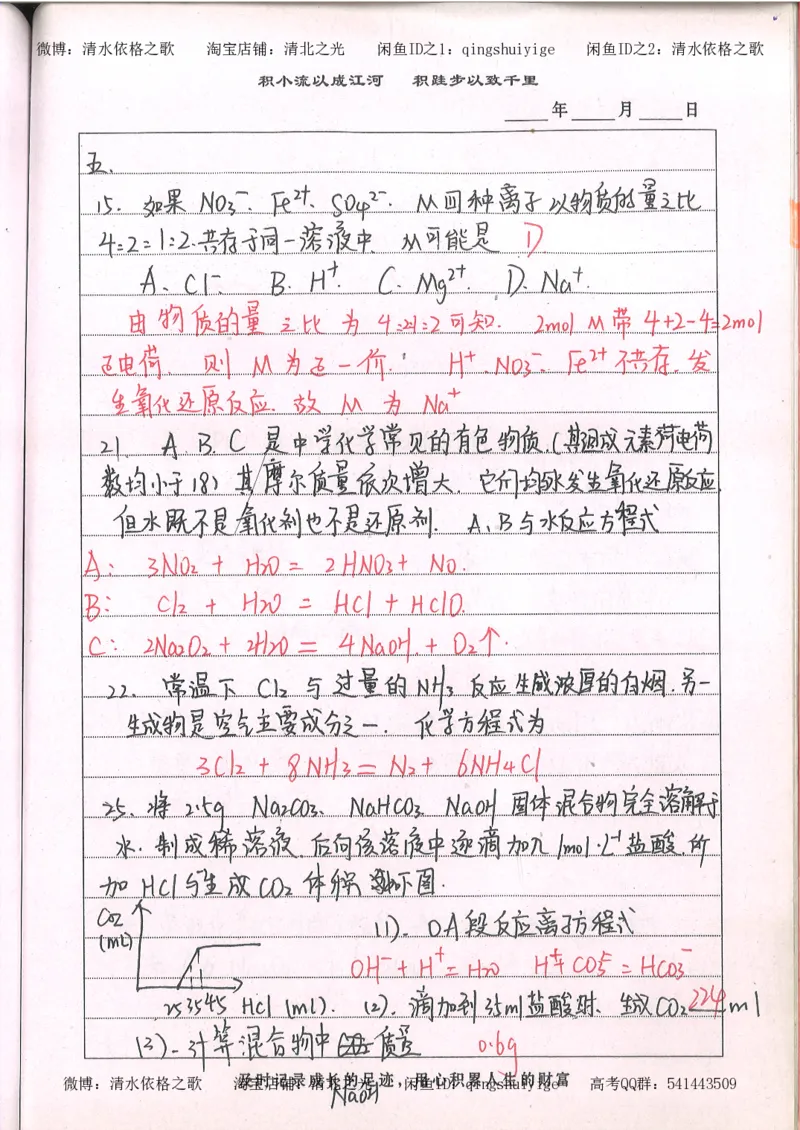 微博：清水依格之歌 淘宝店铺：清北之光 闲鱼ID之1：qingshuiyige 闲鱼ID之2：清水依格之歌
积小流以成江河 积跬步以致千里
年 月 日
五、
15. 如果 NO3⁻、Fe²⁺、SO4²⁻、M四种离子以物质的量之比
4:2:1:2.共存于同一溶液中，M可能是 D
A、Cl⁻ B. H⁺. C. Mg²⁺. D. Na⁺.
由物质的量之比为4:2:1:2可知. 2mol M带4+2-4=2mol
正电荷. 则M为正一价. H⁺、NO3⁻、Fe²⁺不共存,发
生氧化还原反应. 故M为Na⁺
21. A、B、C是中学化学常见的有色物质.(其组成元素荷电荷
数均小于18)其摩尔质量依次增大. 它们均与水发生氧化还原反应
但水既不是氧化剂也不是还原剂. A、B与水反应方程式
A: 3NO2 + H2O = 2HNO3 + NO.
B: Cl2 + H2O = HCl + HClO.
C: 2Na2O2 + 2H2O = 4NaOH + O2↑.
22. 常温下Cl2与过量的NH3反应生成浓厚的白烟.另一
生成物是空气主要成分之一. 化学方程式为
3Cl2 + 8NH3 = N2 + 6NH4Cl
25. 将2.5g Na2CO3、NaHCO3、NaOH固体混合物完全溶解于
水. 制成稀溶液. 后向该溶液中逐滴加入1mol·L⁻¹盐酸.所
加HCl与生成CO2体积如下图.
CO2
(ml)
(1). OA段反应离子方程式
OH⁻ + H⁺ = H2O H⁺+CO3²⁻ = HCO3⁻
25 35 45 HCl (ml). (2). 滴加到35ml盐酸时、生成CO2 224 ml
(3). 计算混合物中NaOH质量 0.6g
及时记录成长的足迹，用心积累人生的财富
微博：清水依格之歌 淘宝店铺：清北之光 闲鱼ID：qingshuiyige 高考QQ群：541443509